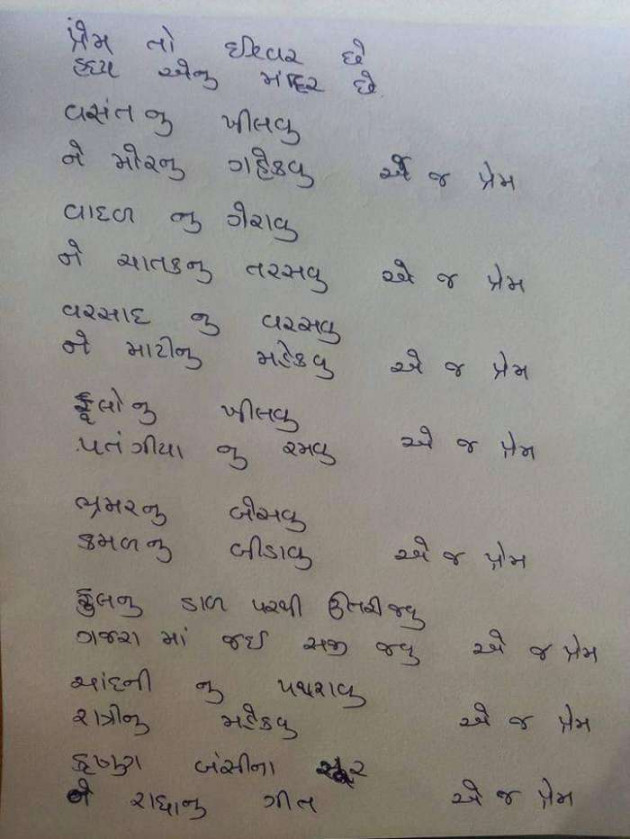 પ્રેમ તો ઈશ્વર છે
હૃદય એનુ મંદિર છે
વસંત નુ ખીલવુ
ને મોરનુ ગહેકવુ એ જ પ્રેમ
વાદળ નુ ગેરાવુ
ને ચાતકનુ તરસવુ એ જ પ્રેમ
વરસાદ નુ વરસવુ
ને માટીનુ મહેકવુ એ જ પ્રેમ
ફૂલોનુ ખીલવુ
પતંગીયા નુ રમવુ એ જ પ્રેમ
ભ્રમરનુ બેસવુ
કમળનુ બીડાવુ એ જ પ્રેમ
ફુલનુ ડાળ પરથી ઉતરીજવુ
ગજરા માં જઈ સજી જવુ એ જ પ્રેમ
ચાંદની નુ પથરાવુ
રાત્રીનુ મહેકવુ એ જ પ્રેમ
કૃષ્ણના બંસીના સૂર
ને રાધાનુ ગીત એ જ પ્રેમ